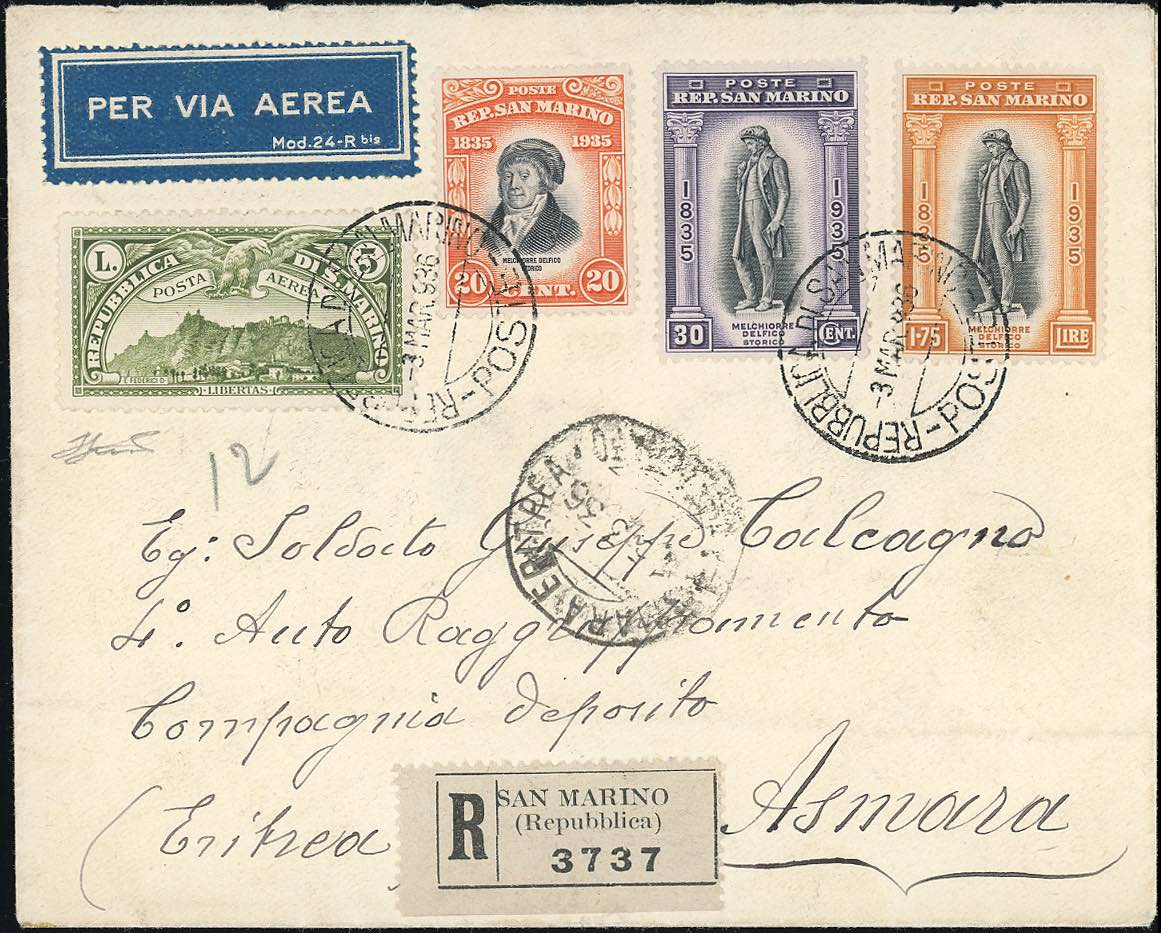 PER VIA AEREA
Mod.24-R bis
L. 5
REPUBBLICA DI S. MARINO
POSTA AEREA
E. FEDERICI D.
LIBERTAS
POSTE
REP. SAN MARINO
1835 1935
MELCHIORRE DELFICO
STORICO
20 CENT. 20
POSTE
REP. SAN MARINO
1835 1935
MELCHIORRE
DELFICO
STORICO
30 CENT.
POSTE
REP. SAN MARINO
1835 1935
MELCHIORRE
DELFICO
STORICO
1.75 LIRE
SAN MARINO
-3 MAR. 936
-POSTE
REPUBBLICA DI SAN MARINO
-3 MAR. 936
-POSTE
12
ERITREA
Eg: Soldato Giuseppe Calcagno
4º. Auto Raggruppamento
Compagnia deposito
(Eritrea Asmara
R
SAN MARINO
(Repubblica)
3737